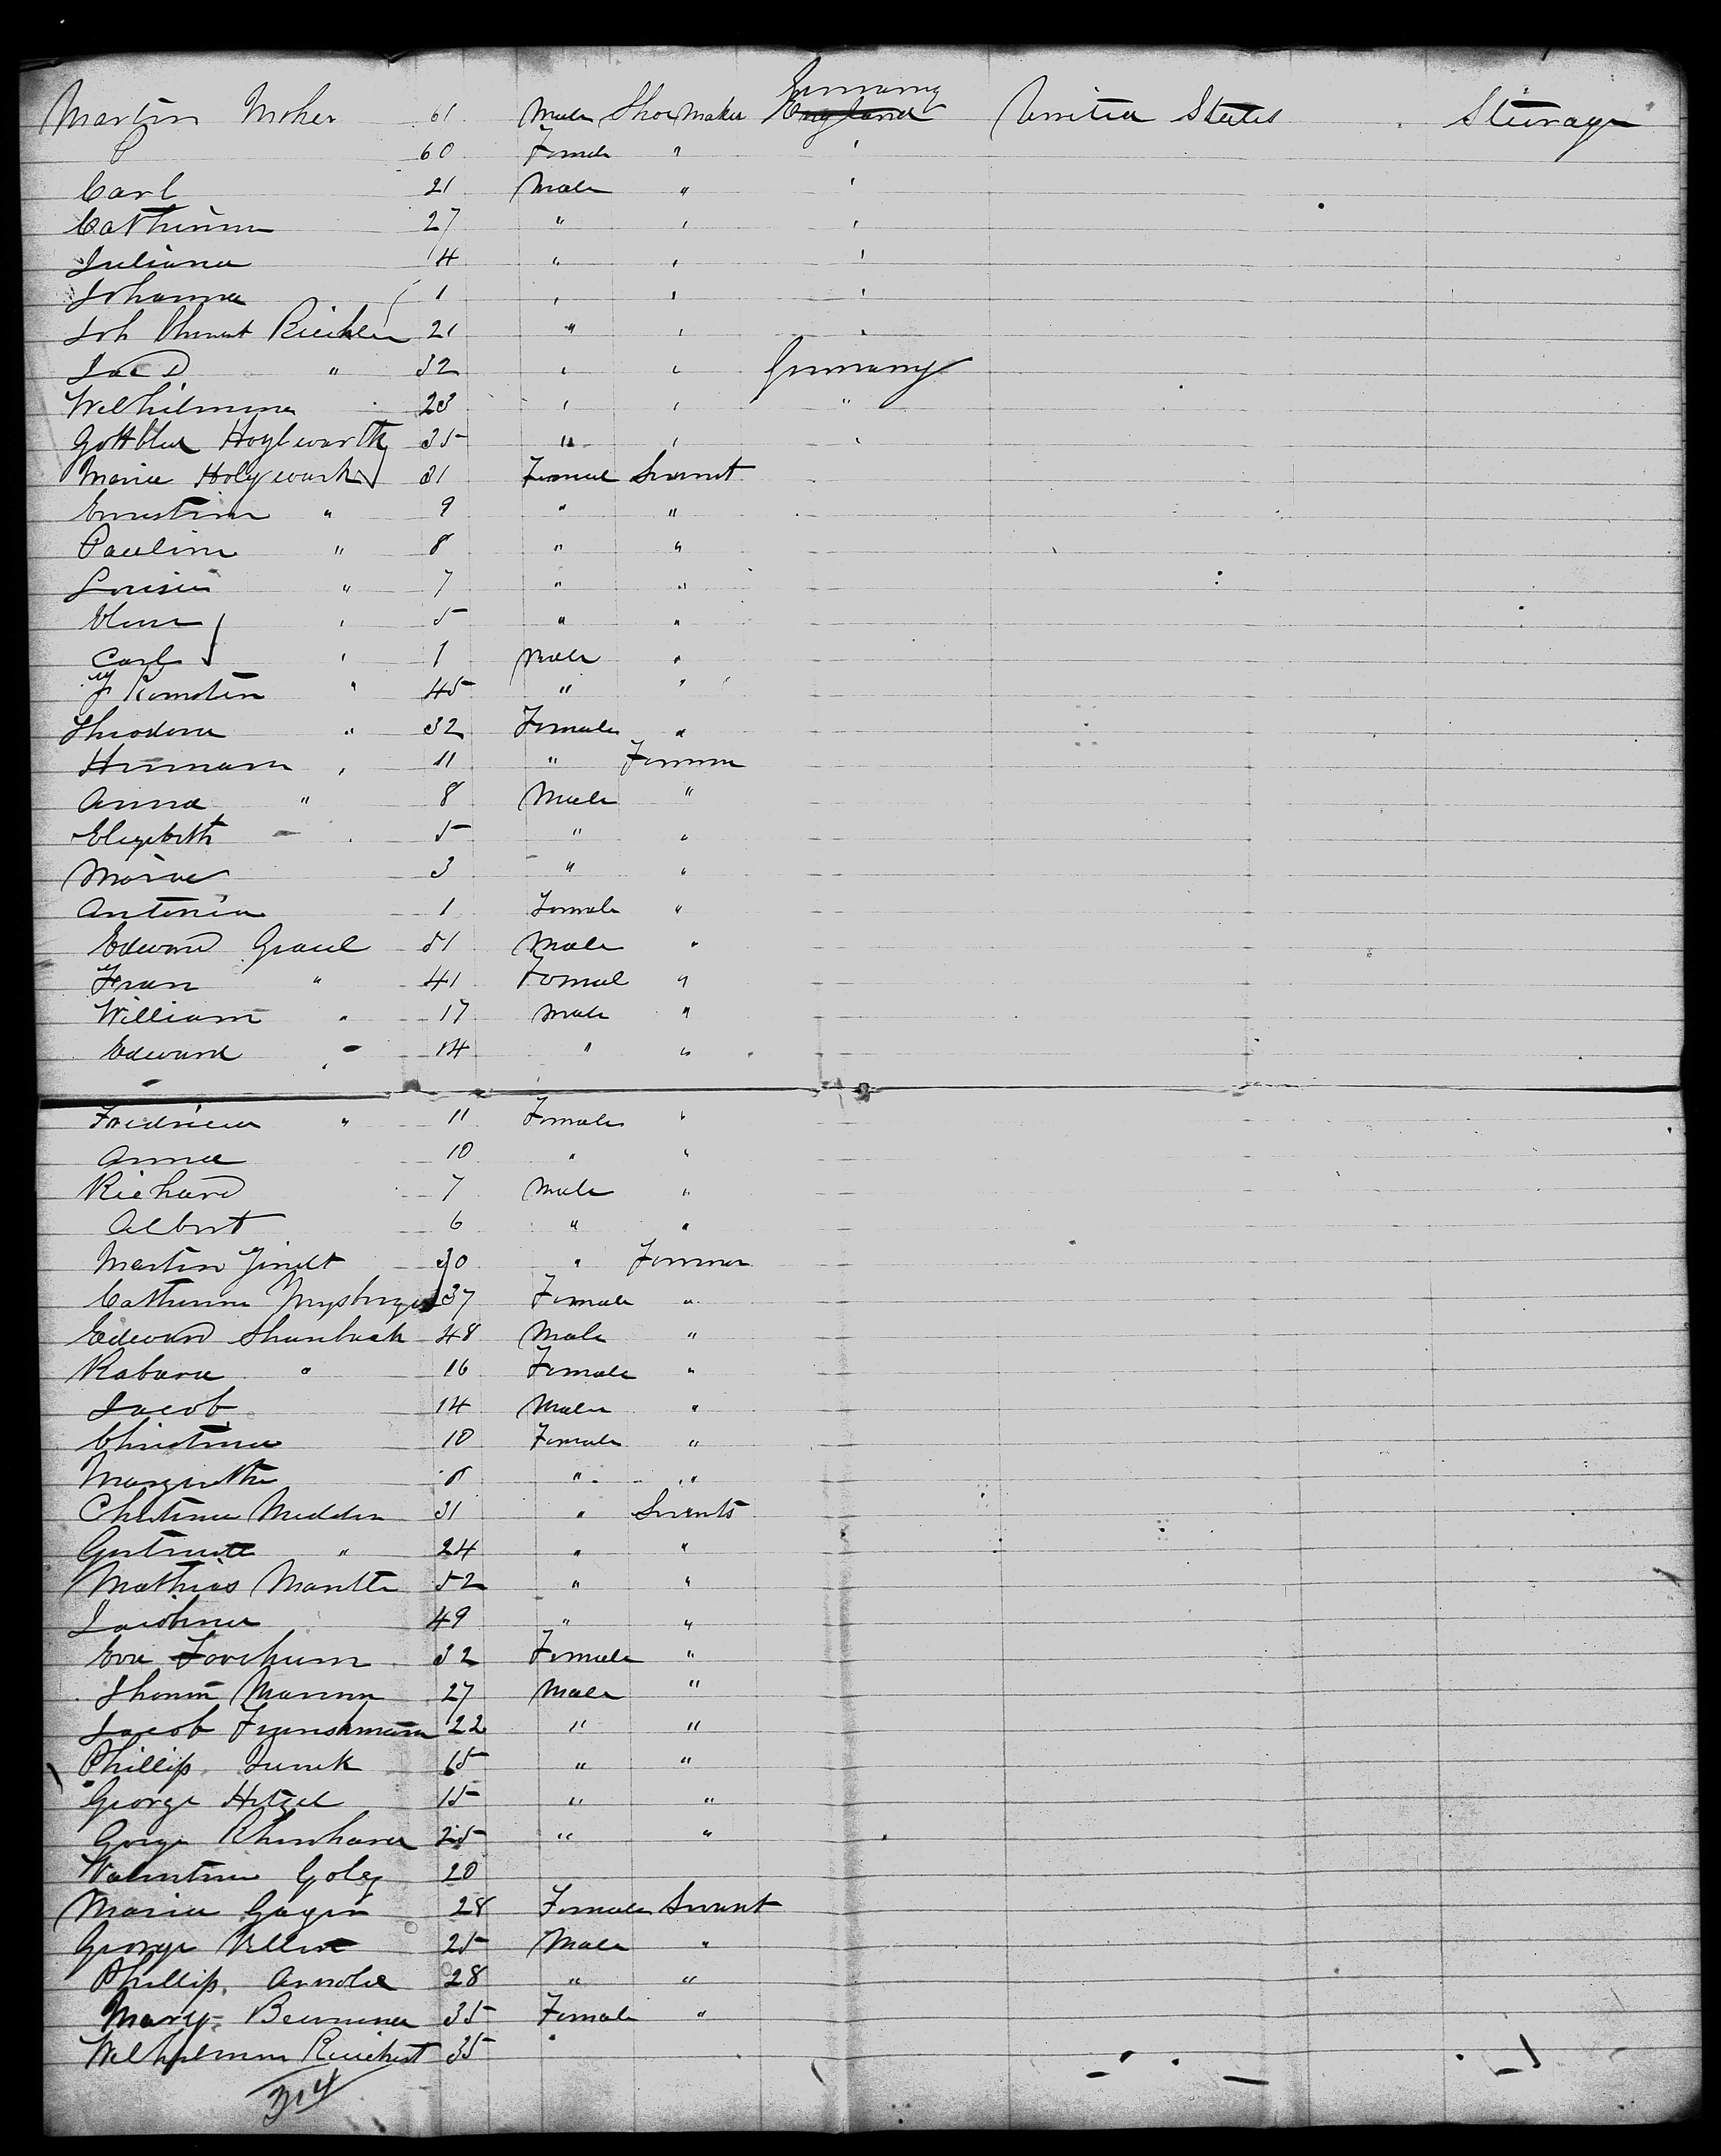 Germany
Martin Moher 61 Male Shoe Maker England United States Steerage
P 60 Female " "
Carl 21 Male " "
Catherine 27 " " "
Juliana 4 " " "
Johanna 1 " " "
Joh Riechlen 21 " " "
Jac D " 32 " " Germany
Wilhilmina 23 " " "
Gottblue Hoylwarth 35 " " "
Maria Holywarth 31 Female Servant
Ernestine " 9 " "
Pauline " 8 " "
Louisa " 7 " "
" 5 " "
Carl " 1 Male "
" 45 " "
Theodora " 32 Female "
Hermann " 11 " Farmer
Anna " 8 Male "
Elizebeth " 5 " "
Maria 3 " "
Antonia 1 Female "
Edward Graul 51 Male "
Fran " 41 Female "
William " 17 Male "
Edward " 14 " "
Fredricka " 11 Female "
Anna 10 " "
Richard 7 Male "
Albert 6 " "
Martin 30 " Farmer
Catherine 37 Female "
Edward Shunbach 48 Male "
Rabara " 16 Female "
Jacob 14 Male "
Christina 10 Female "
Margretha 8 " "
Christina Medden 31 " Servants
Gertrude " 24 " "
Mathias Mantle 52 " "
Jacobina 49 " "
Eva 32 Female "
27 Male "
Jacob 22 " "
Phillip 65 " "
George Hetzel 15 " "
George Rhinhard 25 " "
Valentine Goley 20
Maria Gayer 28 Female Servant
George 25 Male "
Phillip Arnold 28 " "
Mary 35 Female "
Wilhelmina Reichert 35 "
314